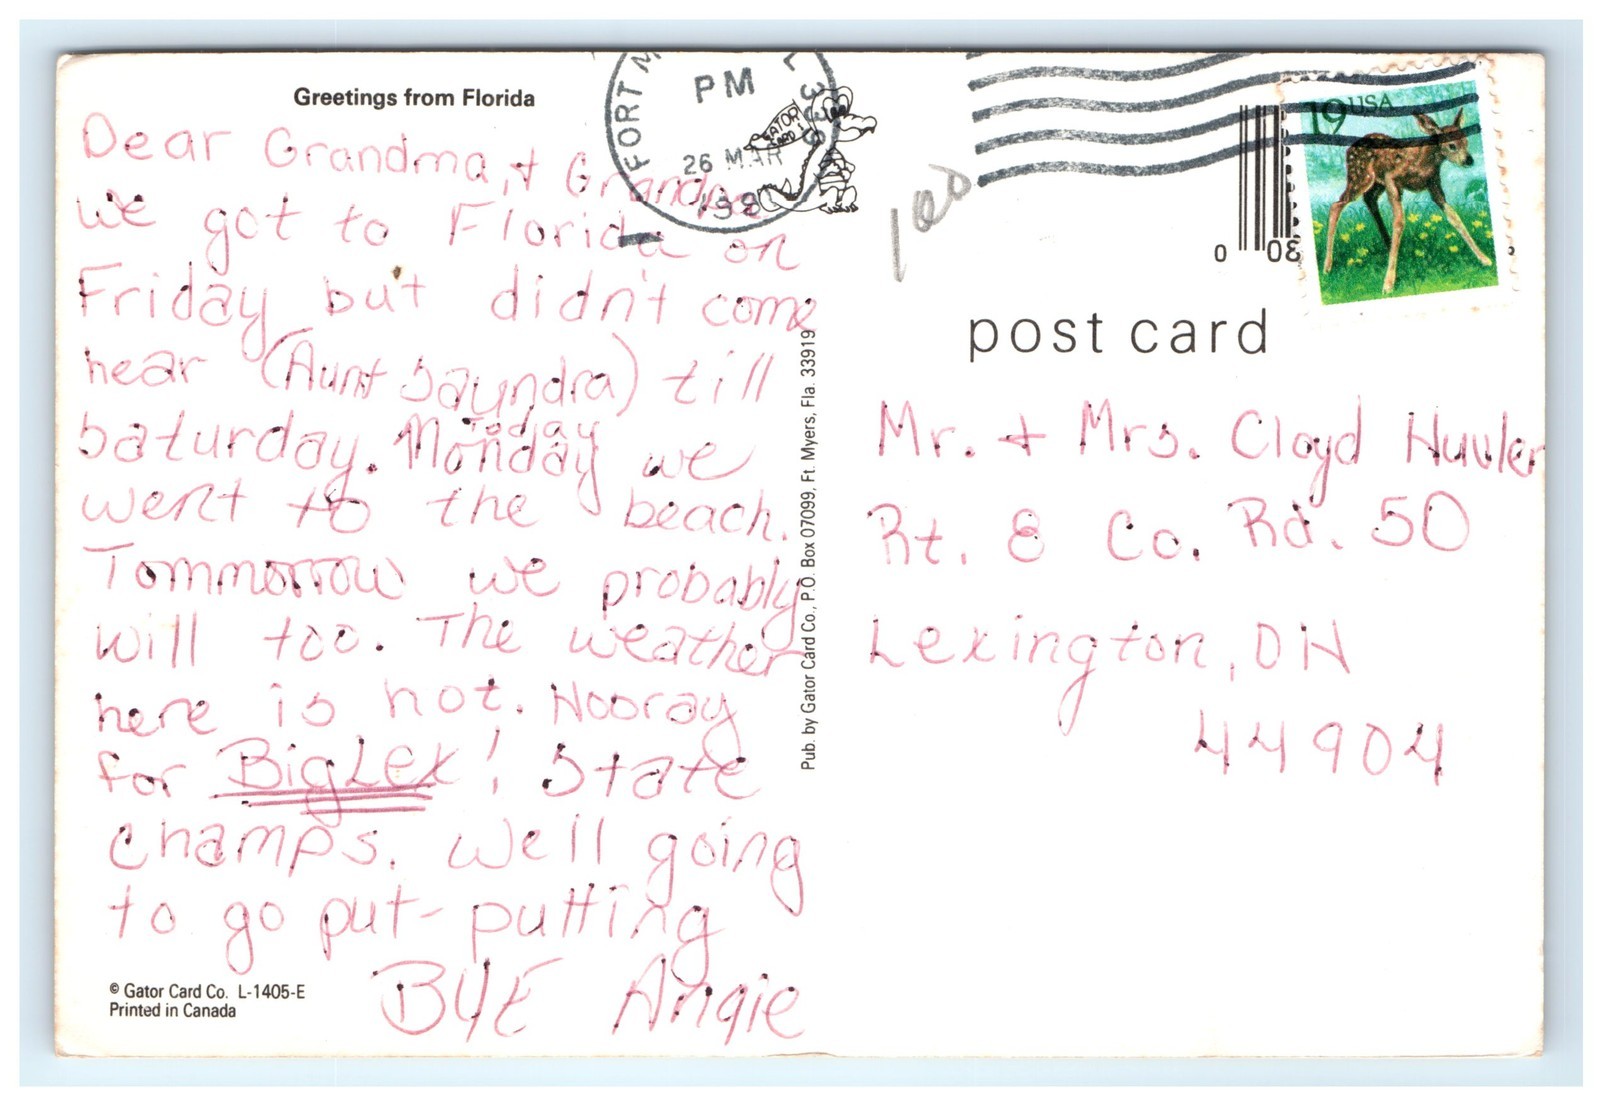 Greetings from Florida
Dear Grandma, + Grandpa
we got to Florida on
Friday but didn't come
hear (Aunt Sayndra) till
Saturday. Monday Today we
went to the beach.
Tommorrow we probably
will too. The weather
here is hot. Hooray
for BigLex! State
champs. Well going
to go put-putting
BYE Angie
© Gator Card Co. L-1405-E
Printed in Canada
Pub. by Gator Card Co., P.O. Box 07099, Ft. Myers, Fla. 33919
FORT M
PM
26 MAR
GATOR
CARD
100
19 USA
0
post card
Mr. + Mrs. Cloyd
Rt. 8 Co. Rd. 50
Lexington, OH
44904